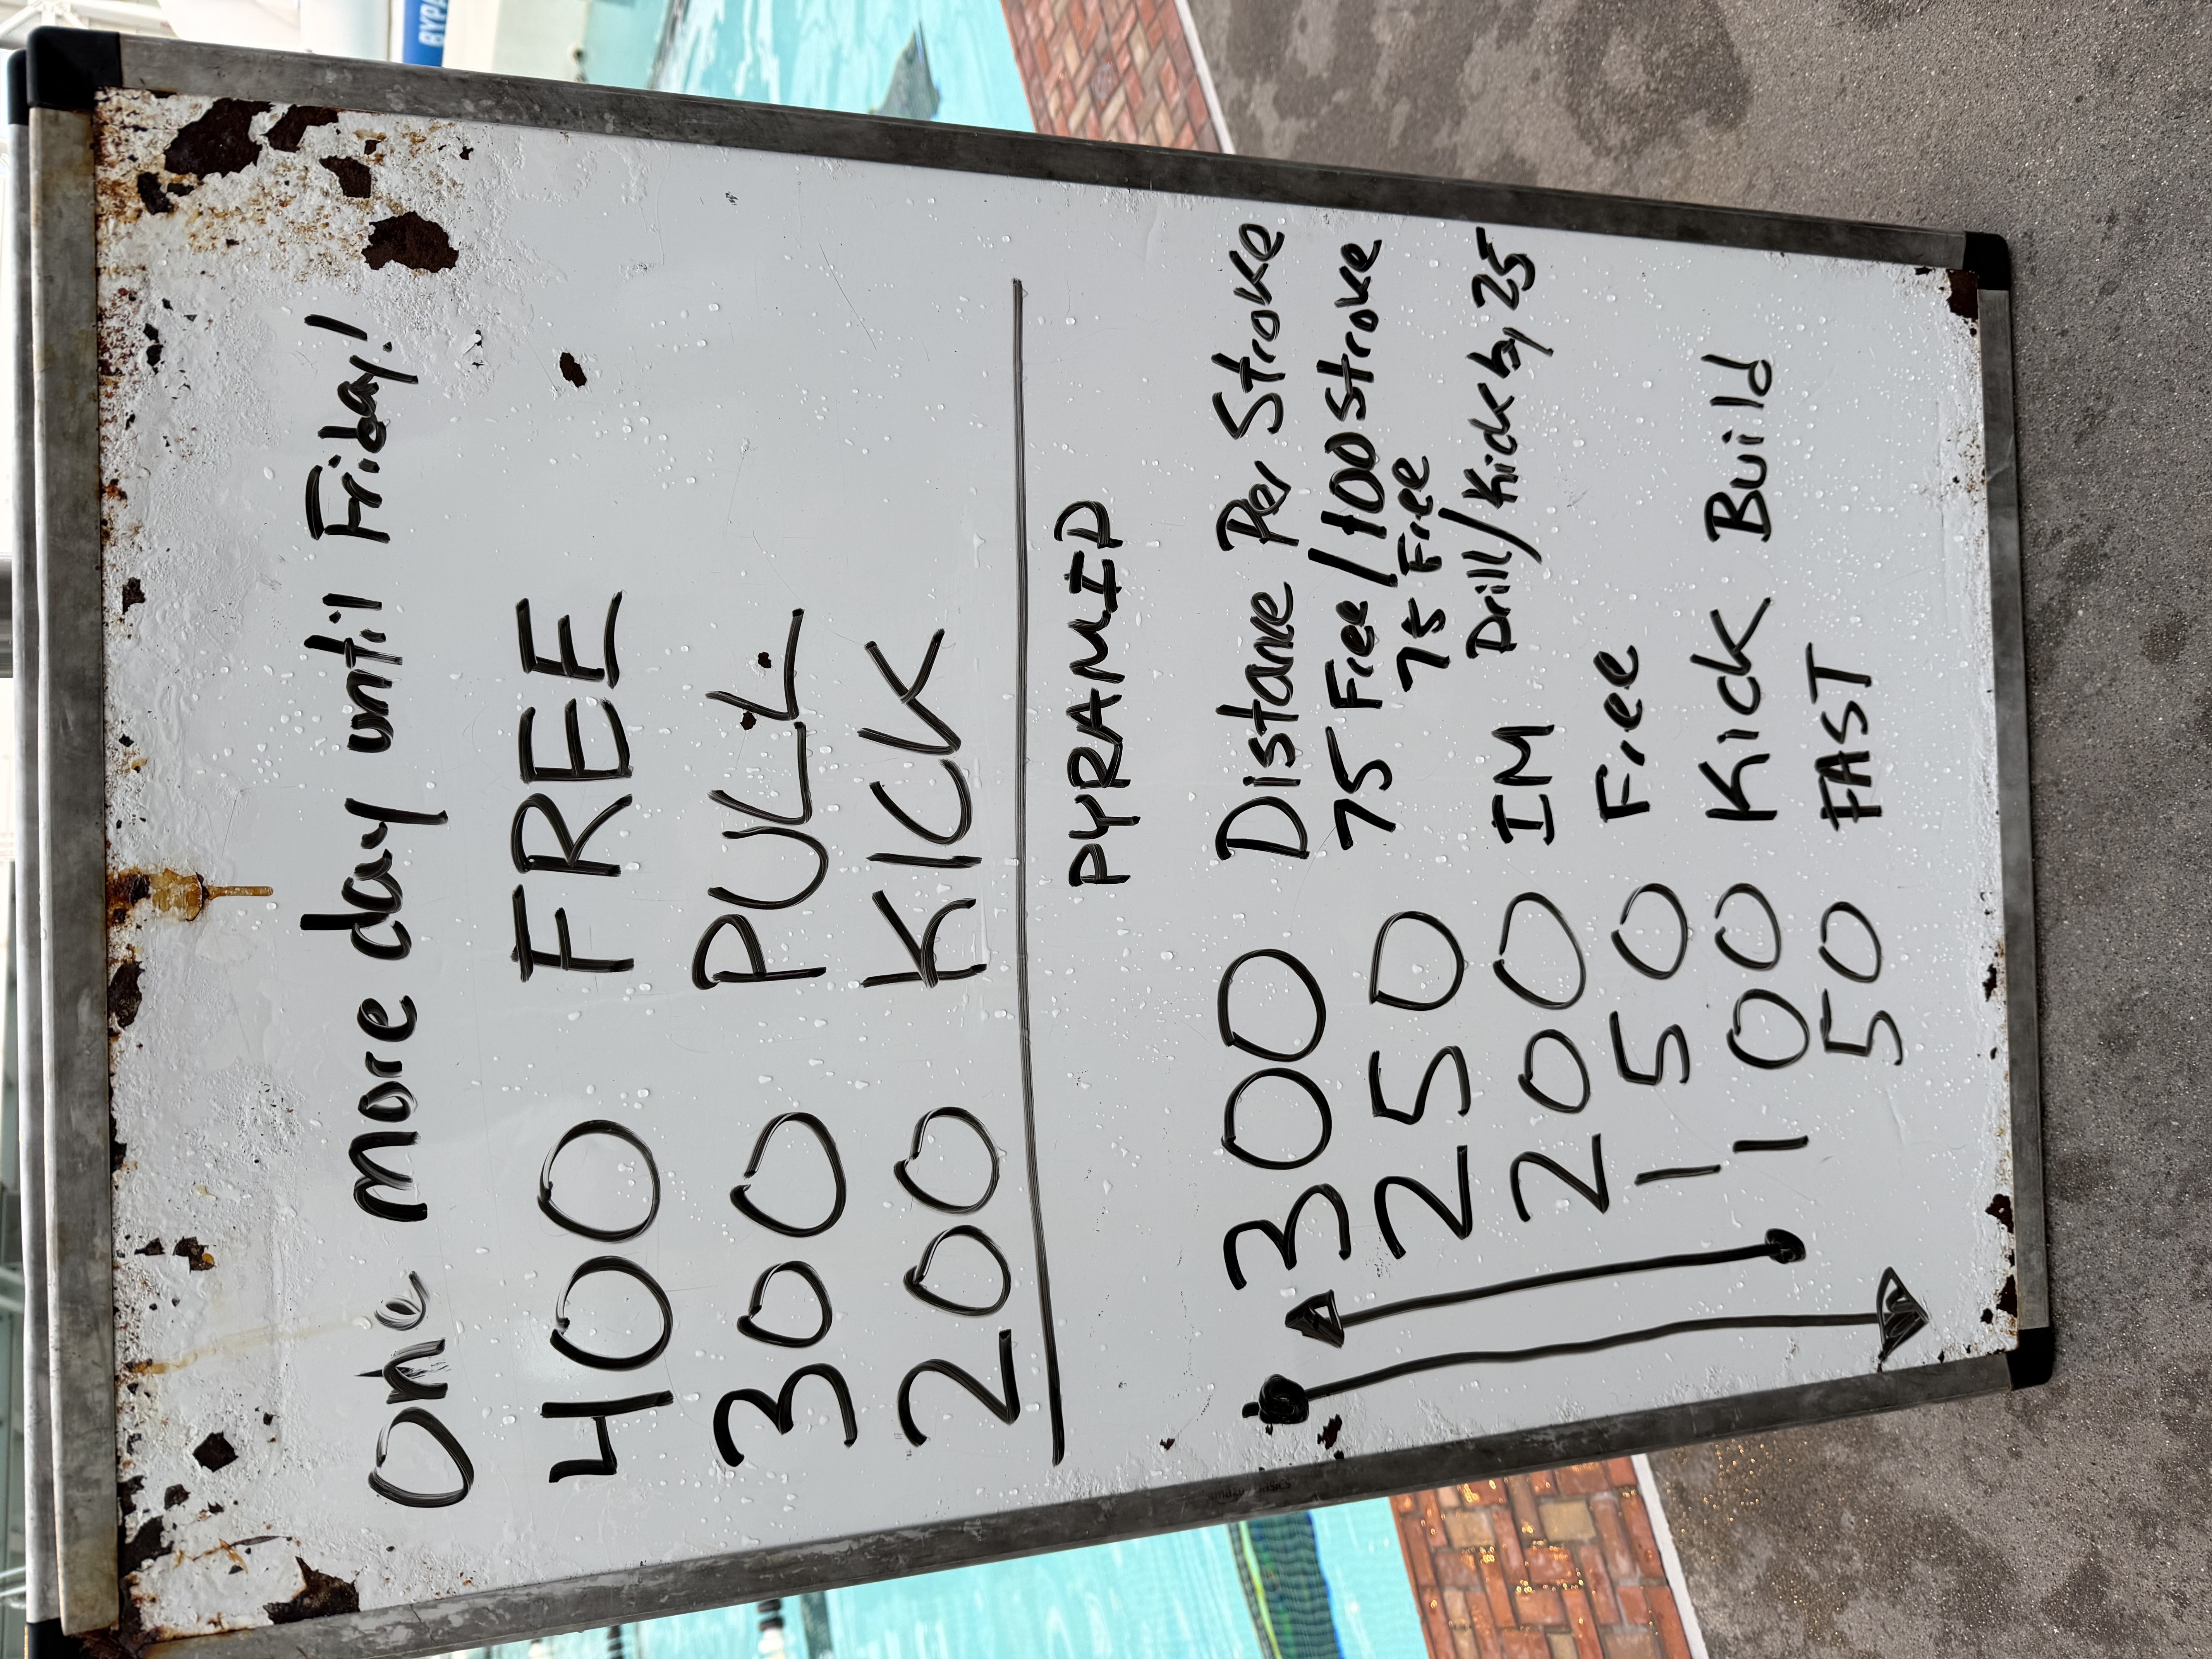 One more day until Friday!
400 FREE
300 PULL
200 KICK
PYRAMID
300 Distance Per Stroke
250 75 Free/100 Stroke
75 Free
200 IM Drill/Kick by 25
150 Free
100 Kick Build
50 FAST